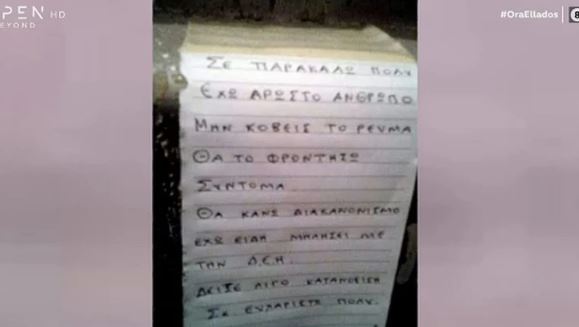 PEN HD
BEYOND
#OraEllados
8
ΣΕ ΠΑΡΑΚΑΛΩ ΠΟΛΥ
ΕΧΩ ΑΡΩΣΤΟ ΑΝΘΡΩΠΟ
ΜΗΝ ΚΟΒΕΙΣ ΤΟ ΡΕΥΜΑ
ΘΑ ΤΟ ΦΡΟΝΤΗΣΩ
ΣΥΝΤΟΜΑ
ΘΑ ΚΑΝΩ ΔΙΑΚΑΝΟΝΙΣΜΟ
ΕΧΩ ΕΙΔΗ ΜΗΛΗΣΕΙ ΜΕ
ΤΗΝ Δ.Ε.Η.
ΔΕΙΞΕ ΛΙΓΟ ΚΑΤΑΝΟΗΣΗ
ΣΕ ΕΥΧΑΡΙΣΤΩ ΠΟΛΥ.